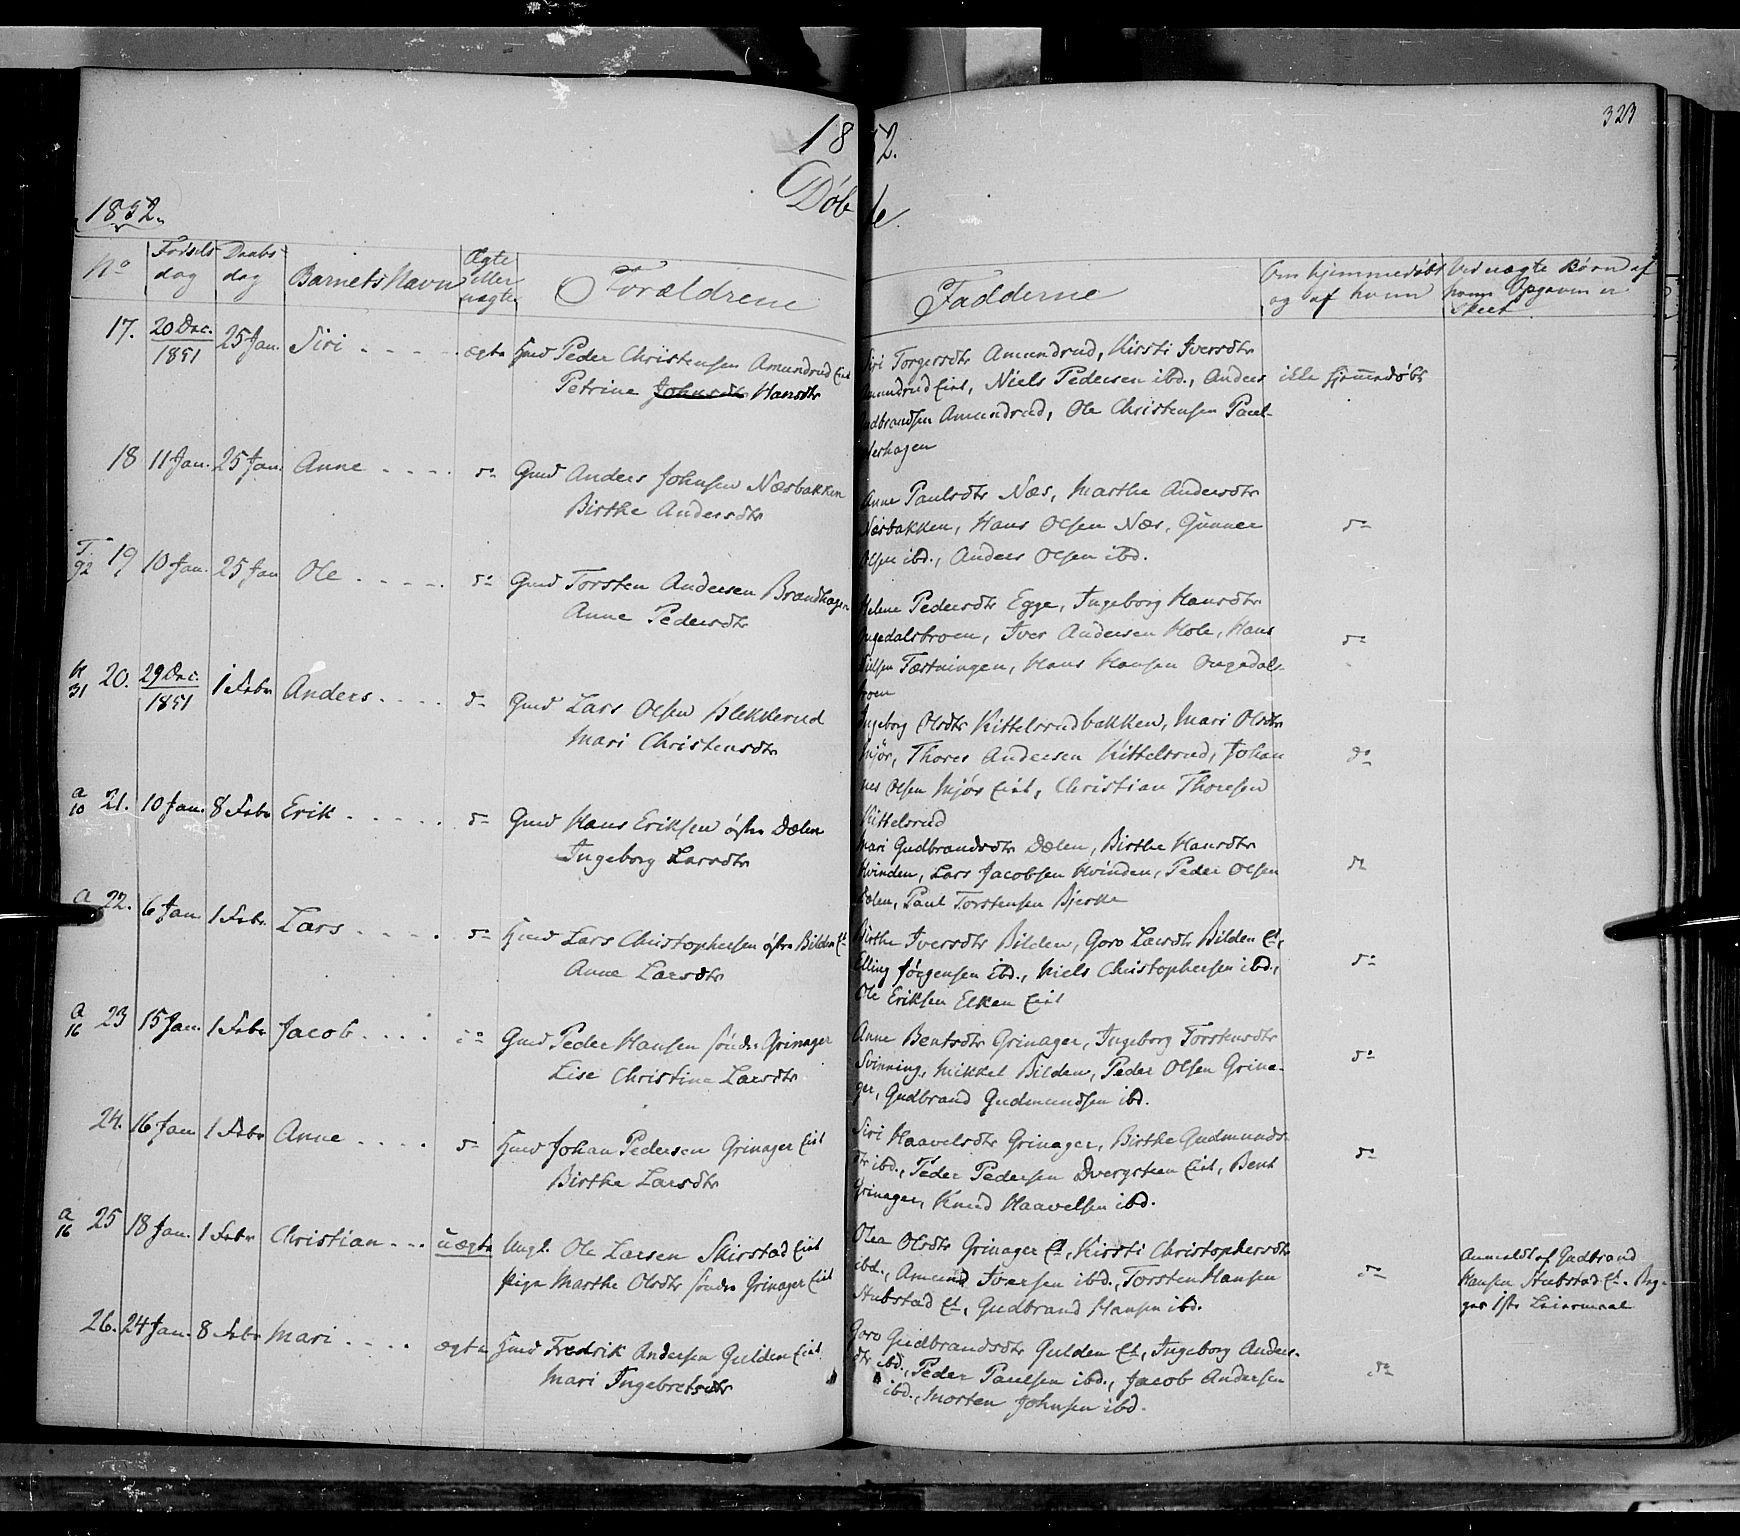 323
1852.
Døbte.
1852.
No
Fødsels dag
Daabs dag
Barnets Navn
Ægte eller uægte
Forældrene
Fadderne
Om hjemmedøbt og af hvem
Ved uægte Børn af hvem Opgaven er skeet
17. 20 Dec. 1851 25 Jan. Siri ægte Huusm Peder Christensen Amundrud Eiet
Petrine Johnsdtr Hansdtr
Siri Torgersdtr Amundrud, Kirsti Iversdtr
Amundrud Eiet, Niels Pedersen ibd., Anders ikke hjemmedøbt
Gudbrandsen Amundrud, Ole Christensen Paul-
derhagen
18 11 Jan. 25 Jan. Anne do Gmd Anders Johnsen Næsbakken
Birthe Andersdtr
Anne Paulsdtr Næs, Marthe Andersdtr
Næsbakken, Hans Olsen Næs, Gunner do
Olsen ibd., Anders Olsen ibd.
T. 92 19 10 Jan. 25 Jan Ole do Gmd Torsten Andersen Brændhagen
Anne Pedersdtr
Helene Pedersdtr Egge, Ingeborg Hansdtr
Ongedalsbroen, Iver Andersen Hole, Hans do
Nielsen Tæstningen, Hans Hansen Ongedals-
broen
H 31 20. 29 Dec. 1851 1 Febr Anders do Gmd Lars Olsen Blekkerud
Mari Christensdtr
Ingeborg Olsdtr Kittelsrudbakken, Mari Olsdtr
Mjør, Thores Andersen Kittelsrud, Johan do
nes Olsen Mjør Eiet, Christian Thoresen
Kittelsrud
a 10 21. 10 Jan. 8 Febr Erik do Gmd Hans Eriksen østre Dælen
Ingeborg Larsdtr
Mari Gudbrandsdtr Dælen, Birthe Hansdtr
Hvinden, Lars Jacobsen Hvinden, Peder Olsen do
Dælen, Paul Torstensen Bjerke
a 22. 6 Jan 1 Febr. Lars do Hmd Lars Christophersen østre Bilden Et
Anne Larsdtr
Birthe Iversdtr Bilden, Goro Larsdtr Bilden Et,
Elling Jörgensen ibd., Niels Christophersen ibd., do
Ole Eriksen Elken Eiet
a 16 23 15 Jan. 1 Febr Jacob do Gmd Peder Hansen söndre Grinager
Lise Christine Larsdtr
Anne Bentsdtr Grinager, Ingeborg Torstensdtr
Svinning, Mikkel Bilden, Peder Olsen Grina- do
ger, Gudbrand Gudmundsen ibd.
24. 16 Jan 1 Febr Anne do Hmd Johan Pedersen Grinager Eiet
Birthe Larsdtr
Siri Haavelsdtr Grinager, Birthe Gudmunds-
dtr ibd., Peder Pedersen Dvergsteen Eiet, Bent do
Grinager, Knud Haavelsen ibd.
a 16 25 18 Jan. 1 Febr Christian uægte Ungk. Ole Larsen Skirstad Eiet
Pige Marthe Olsdtr söndre Grinager Eiet
Olea Olsdtr Grinager Et, Kirsti Christophersdtr
ibd., Amund Iversen ibd., Torsten Hansen do
Hubstad Et, Gudbrand Hansen ibd.
Anmeldt af Gudbrand
Hansen Hubstad Et. Beg-
ges 1ste Leiermaal
26. 24 Jan. 8 Febr Mari ægte Hmd Fredrik Andersen Gulden Eiet
Mari Ingebretsdtr
Goro Gudbrandsdtr Gulden Et, Ingeborg Anders-
dtr ibd., Peder Paulsen ibd., Jacob Andersen do
ibd., Morten Johnsen ibd.